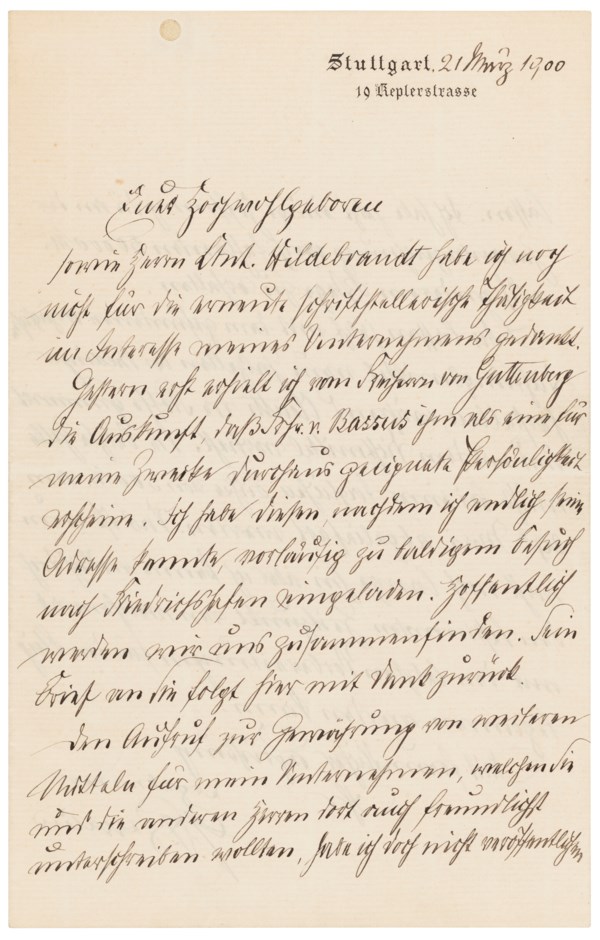 Stuttgart, 21 März 1900
19 Keplerstrasse
Euer Hochwohlgeboren
sowie Herrn Ant. Hildebrandt habe ich noch
nicht für die erneute schriftstellerische Thätigkeit
im Interesse meines Unternehmens gedankt.
Gestern erst erhielt ich vom Freiherrn von Guttenberg
die Auskunft, daß Frhr. v. Bassus ihm als eine für
meine Zwecke durchaus geeignete Persönlichkeit
erscheine. Ich habe diesen, nachdem ich endlich seine
Adresse kannte, vorläufig zu baldigem Besuch
nach Friedrichshafen eingeladen. Hoffentlich
werden wir uns zusammenfinden. Sein
Brief an Sie folgt hier mit Dank zurück.
Den Aufruf zur Gewährung von weiteren
Mitteln für mein Unternehmen, welchen Sie
und die anderen Herren dort auch freundlichst
unterschreiben wollten, habe ich doch nicht veröffentlichen